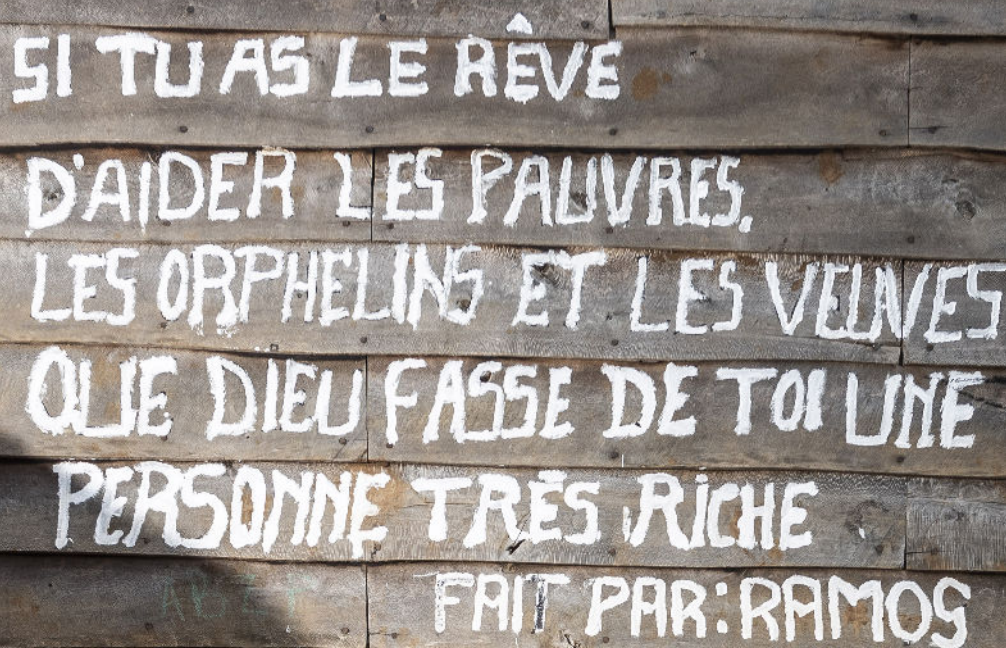 SI TU AS LE RÊVE
D'AIDER LES PAUVRES.
LES ORPHELINS ET LES VEUVES
QUE DIEU FASSE DE TOI UNE
PERSONNE TRÈS RICHE
FAIT PAR: RAMOS